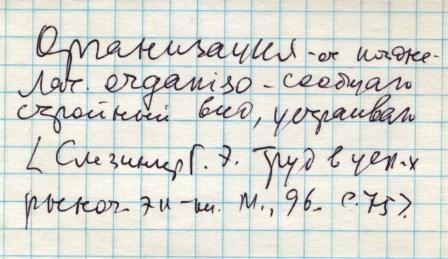 Организация - от поздне-
лат. organiso - сообщаю
стройный вид, устраиваю
[Слезингер Г. Э. Труд в усл-х
рыноч. эк-ки. М., 96. с. 75].